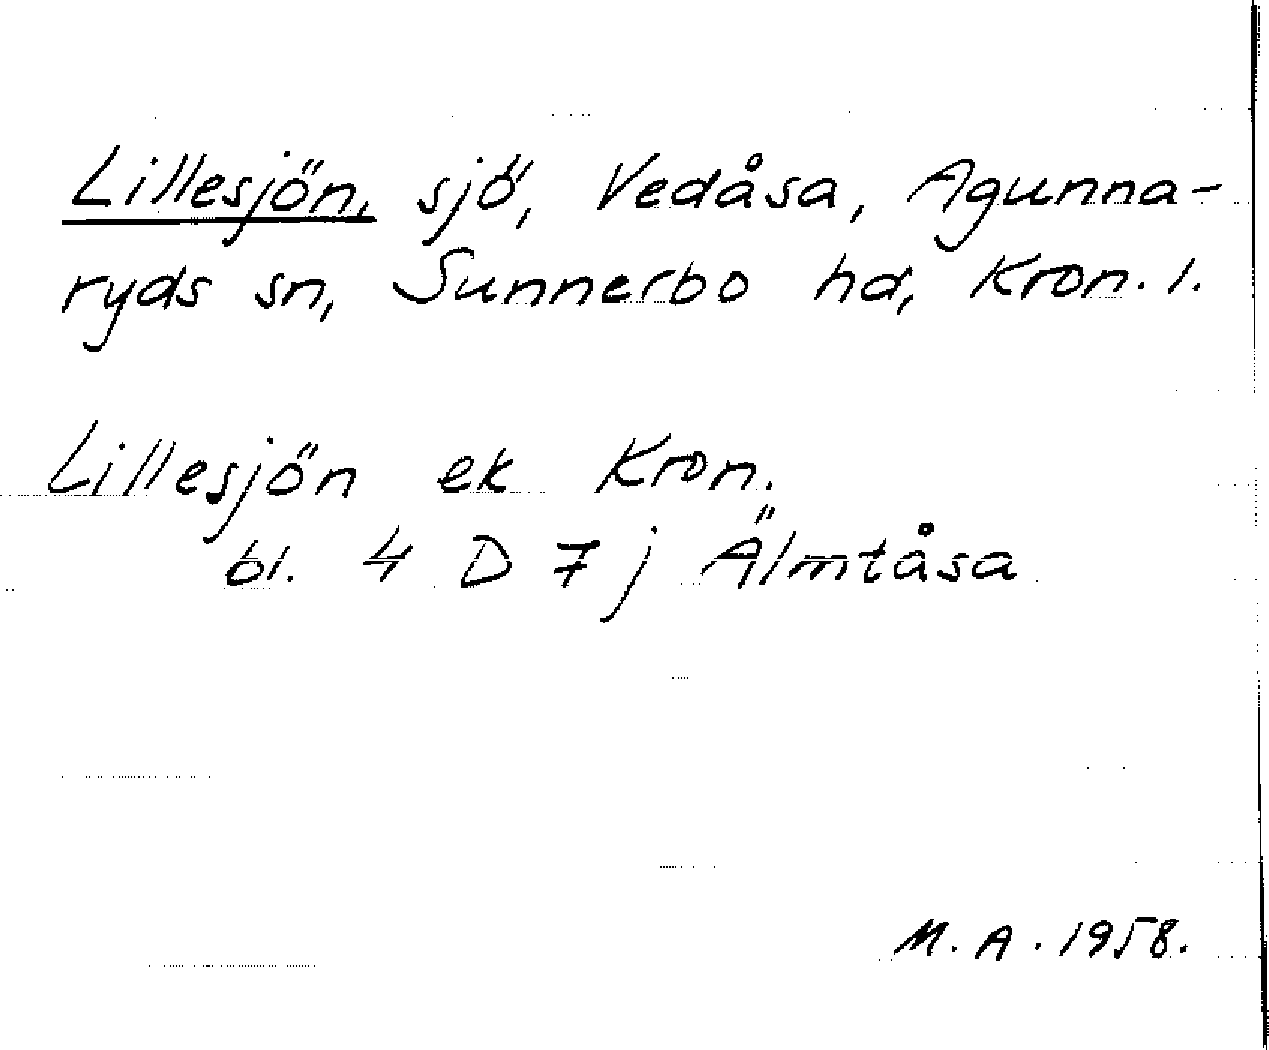 Lillesjön, sjö, Vedåsa, Agunna-
ryds sn, Sunnerbo hd, Kron. l.
Lillesjön ek Kron.
bl. 4 D 7 j Älmtåsa
M. A. 1958.